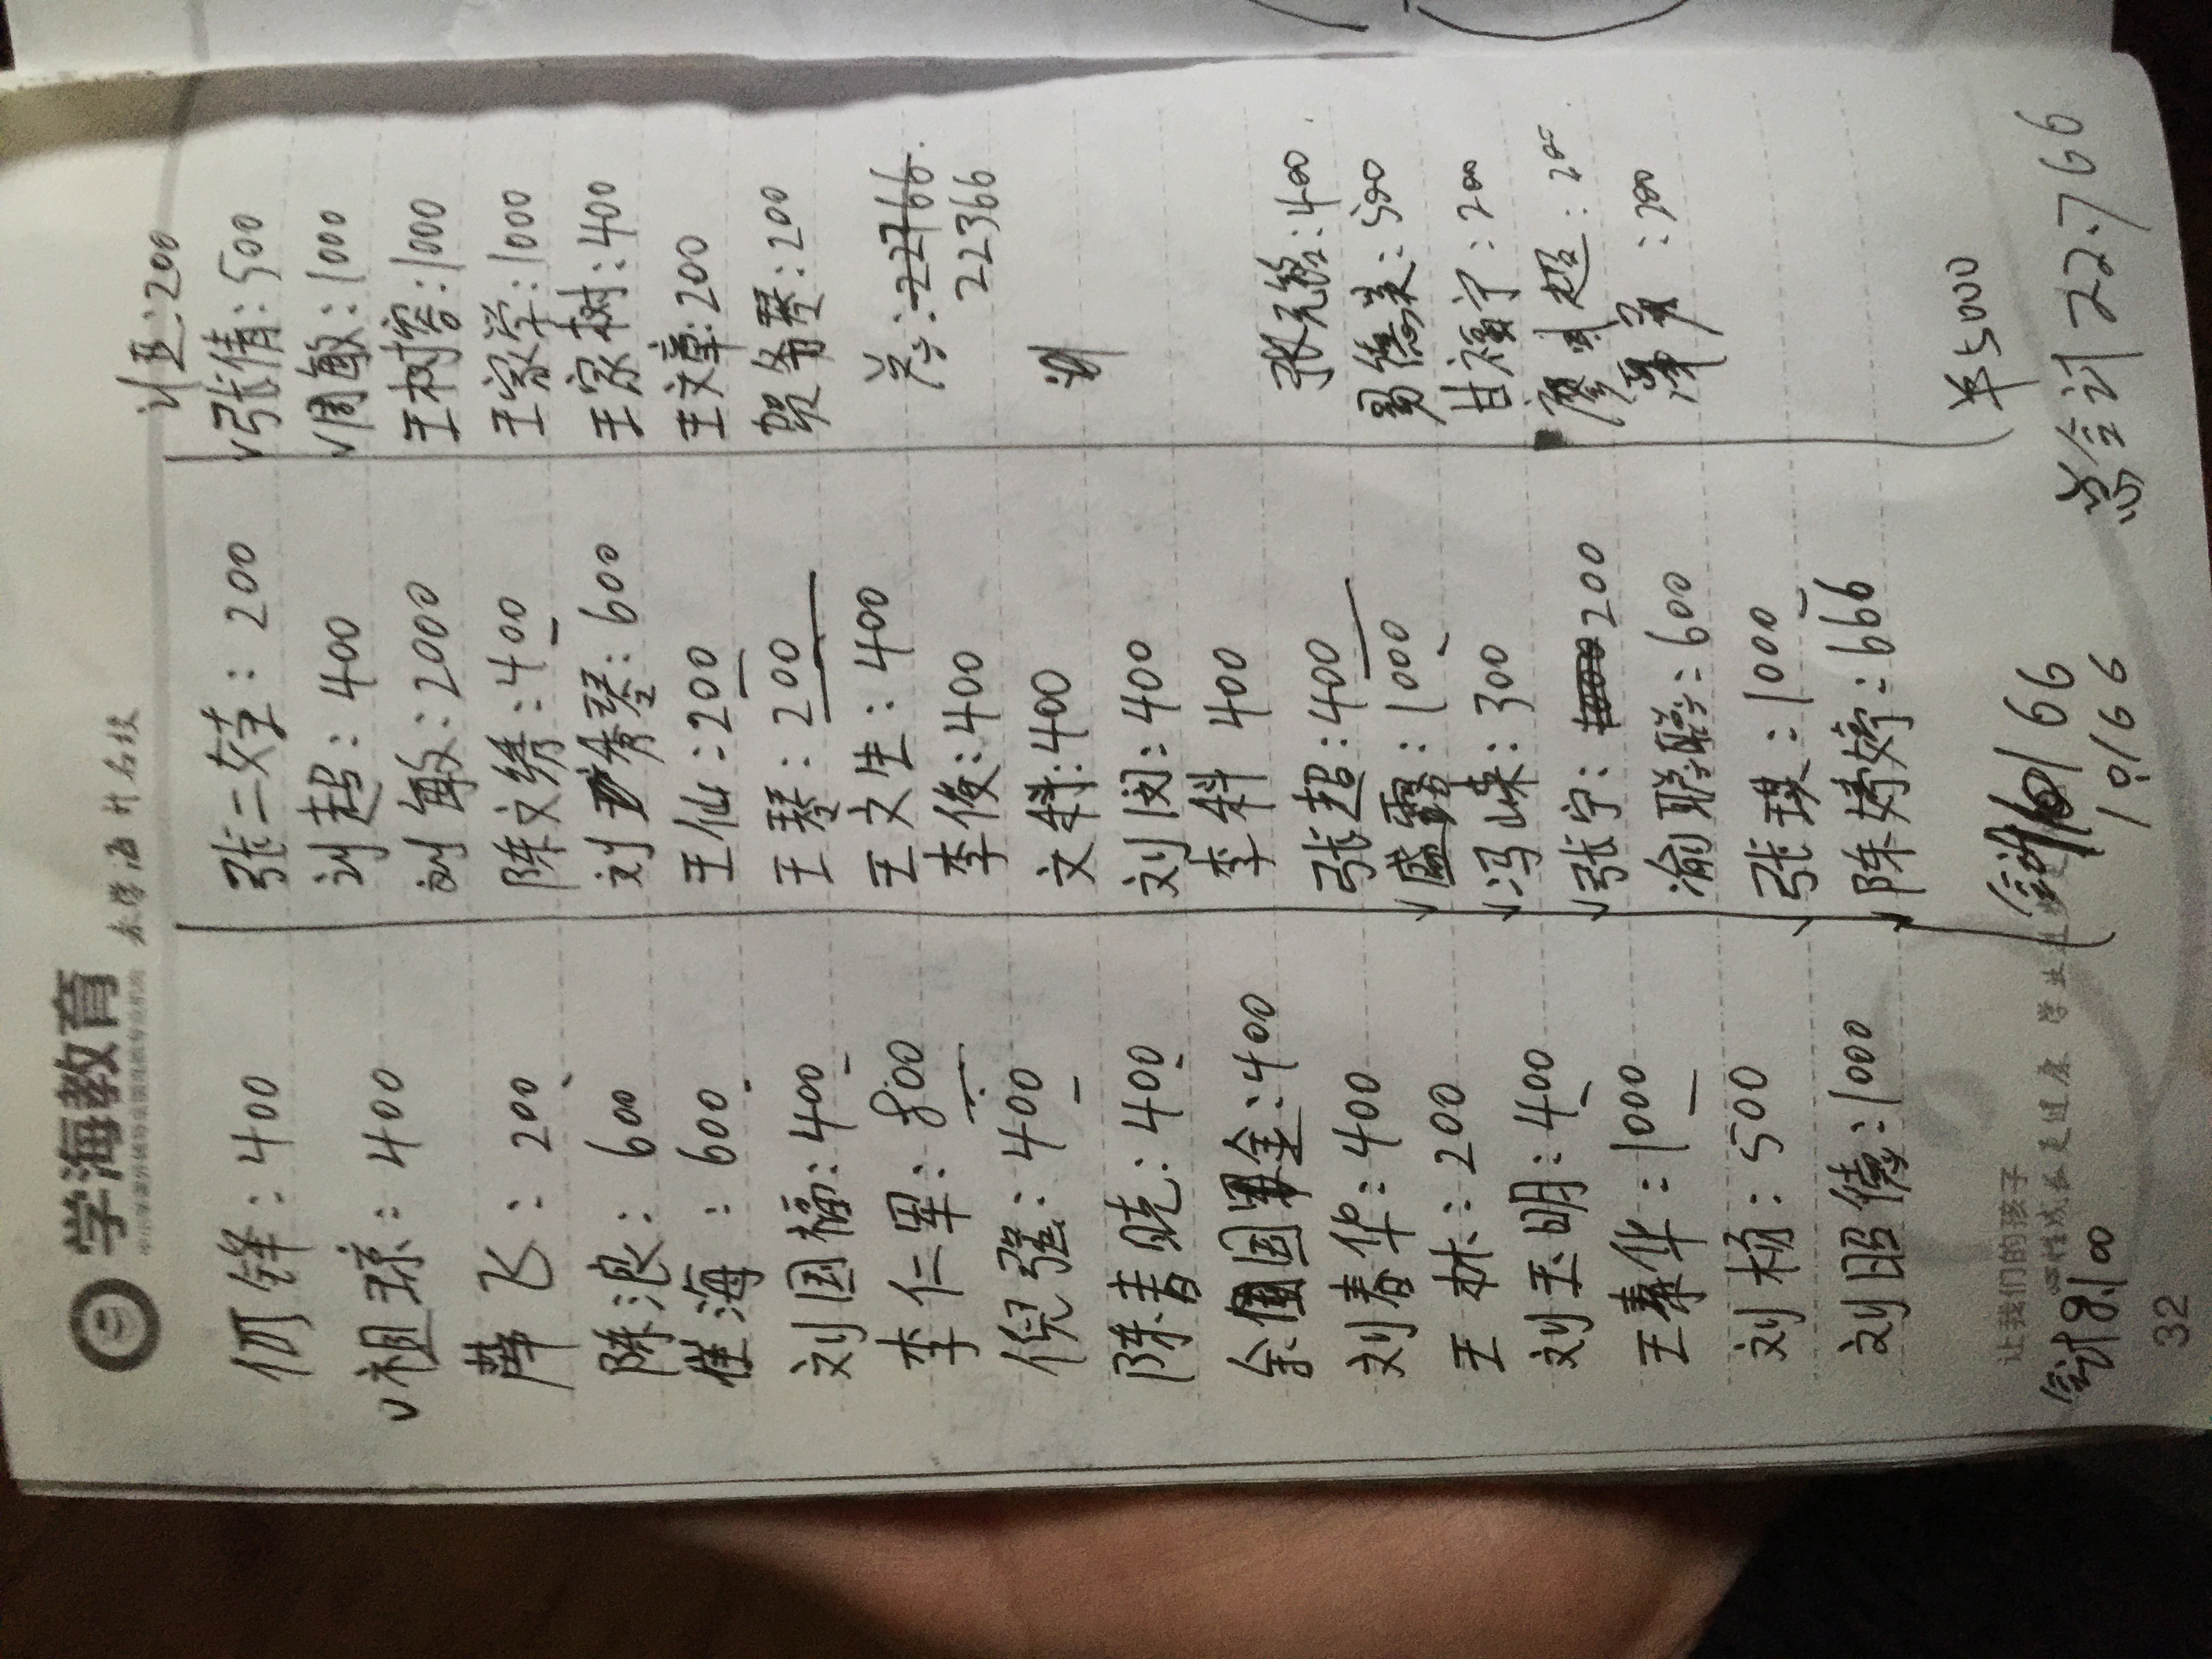 学海教育
来学海 升名校
何锋：400
祖琼：400
薛飞：200
陈浪：600
崔海：600
刘国福：400
李仁军：800
倪强：400
陈春晓：400
余国金：400
刘春华：400
王林：200
刘玉明：400
王泰华：1000
刘杨：500
刘昭德：1000
让我们的孩子
心性成长更健康 学业进步更
合计8100
32
张二娃：200
刘超：400
刘敏：2000
陈文绣：400
刘秀琴：600
王仙：200
王琴：200
王文生：400
李俊：400
文科：400
刘闵：400
李科 400
张超：400
盛露：1000
冯嵘：300
张宁：1000 200
俞聪聪：600
张琪：1000
陈婷婷：666
合计10166
10166
：200
张倩：500
周敏：1000
王树容：1000
王家学：1000
王家树：400
王文章：200
贺务琴：200
总：22766
22366
张元铭：400
易德美：500
甘福宁：200
廖超：200
：200
¥5000
总合计22.766